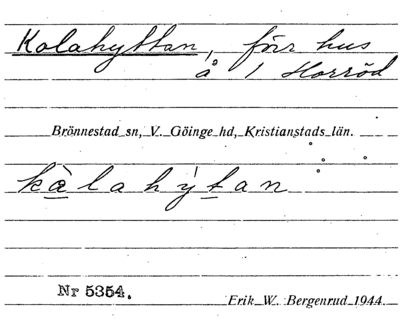 Kolahyttan, förr hus
å 1 Horröd
Brönnestad sn, V. Göinge hd, Kristianstads län.
kàlahy̍tan
Nr 5354.
Erik W. Bergenrud 1944.